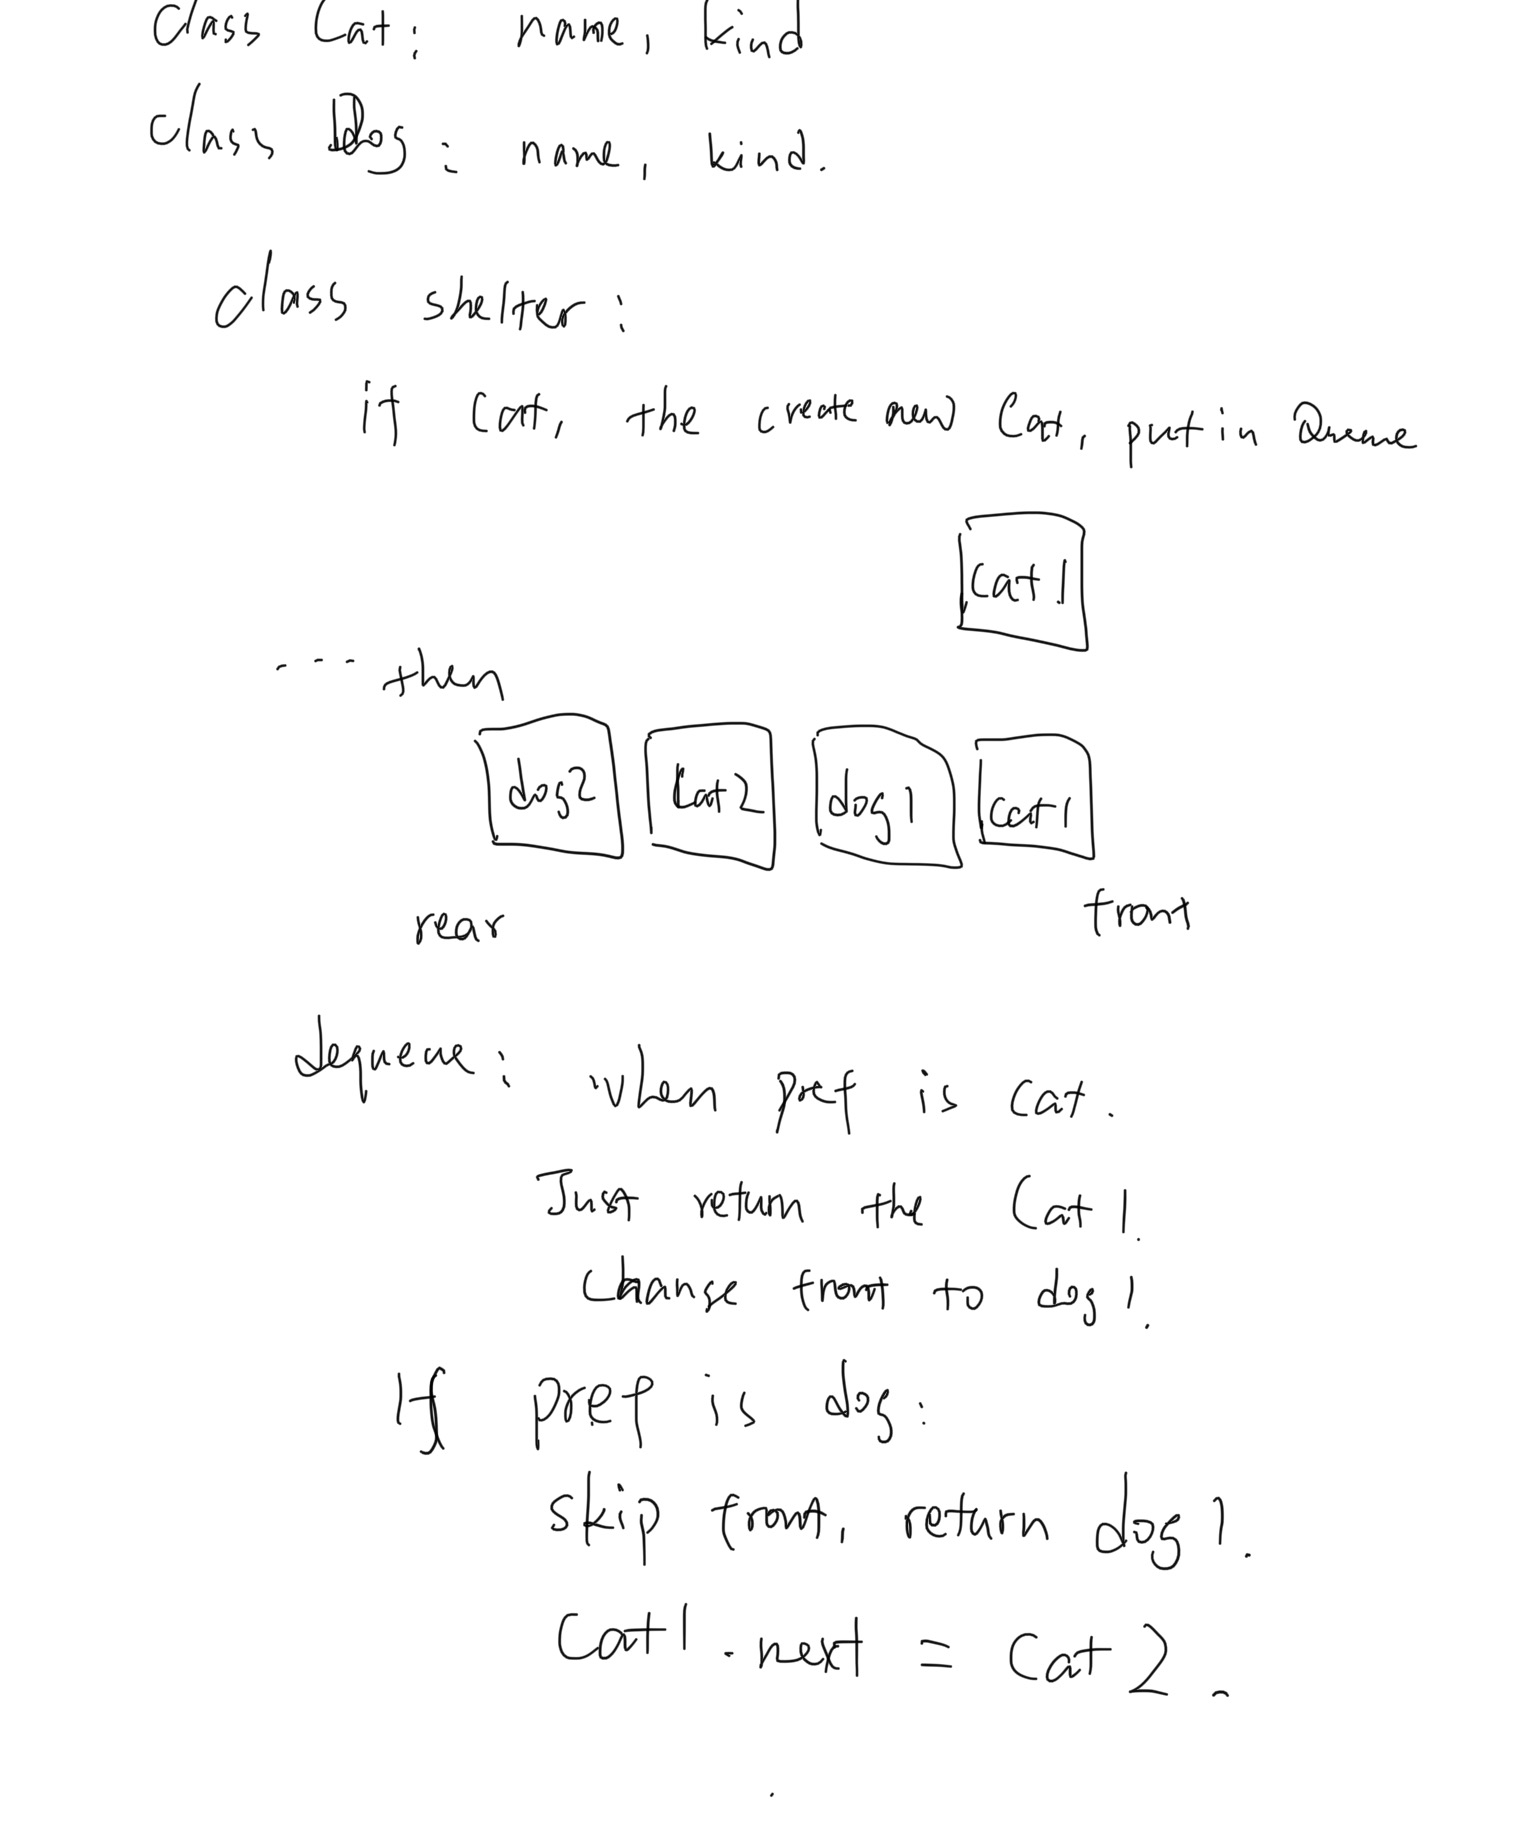 class Cat: name, kind
class Dog: name, kind.
class shelter:
if Cat, the create new Cat, put in Queue
Cat 1
---then
dog2 Cat 2 dog 1 cat 1
rear front
dequeue: when pref is cat.
Just return the Cat 1.
Change front to dog 1.
If pref is dog:
skip front, return dog 1.
Cat1.next = Cat 2.